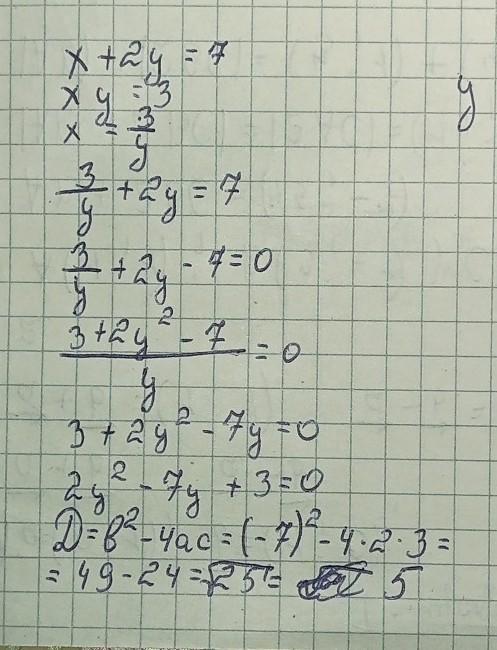 x + 2y = 7
y
xy = 3
x = 3/y
3/y + 2y = 7
3/y + 2y - 7 = 0
(3 + 2y² - 7)/y = 0
3 + 2y² - 7y = 0
2y² - 7y + 3 = 0
D = b² - 4ac = (-7)² - 4·2·3 =
= 49 - 24 = √25 = 5